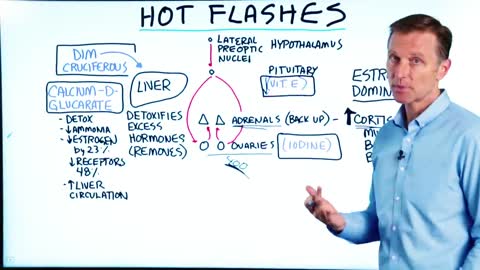 HOT FLASHES
DIM
CRUCIFEROUS
CALCIUM-D-
GLUCARATE
- DETOX
- ↓AMMONIA
- ↓ESTROGEN
BY 23%
↓RECEPTORS
48%
- ↑LIVER
CIRCULATION
LIVER
DETOXIFIES
EXCESS
HORMONES
(REMOVES)
LATERAL
PREOPTIC
NUCLEI
HYPOTHALAMUS
PITUITARY
(VIT E)
ADRENALS (BACK UP) -
OVARIES (IODINE)
400
ESTR
DOMIN
↑CORTIS